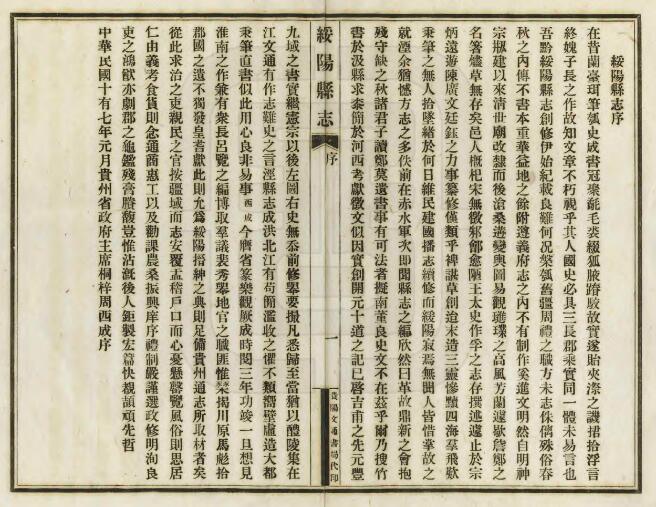 綏陽縣志序
在昔蘭臺珥筆瓠史成書冠聚毳毛裘綴狐腋踳駁故實遂貽夾漈之譏捃拾浮言
終媿子長之作故知文章不朽視乎其人國史必具三長郡乘實同一體未易言也
吾黔綏陽縣志創修伊始紀載良難何况槃瓠舊疆周禮之職方未志侏殊俗春
秋之內傳不書本重華益地之餘附遵義府志之內不有制作奚進文明然自明神
宗建以來清世廟改隸而後滄桑遞變輿圖易觀璞之高風芳蘭遽歇詹鄭之
名箸燼草無存矣邑人概杞宋無徵愈陋王太史作孚之志存撰述遽止於宗
炳遠游陳廣文廷鈺之力事纂修僅類乎裨諶草創迨末造三靈慘黷四海羣飛歎
秉筆之無人拾墜緒於何日維民建國播志續修而綏陽寂焉無聞人皆惜掌故之
就湮余猶憾方志之多佚前在赤水軍次即聞縣志之編欣然曰革故鼎新之會抱
殘守缺之秋諸君子讀鄭莫遺書事有可法者擬南董良史文不在茲乎爾乃搜竹
書於汲縣求泰簡於河西考獻徵文似因實創開元十道之記已啓吉甫之先元豐
綏陽縣志
序
一
貴陽文通書局代印
九域之書實繼憲宗以後左圖右史無忝前修舉要撮凡悉歸至當猶以醴陵集在
江文通有作志難史之言涇縣志成洪北江有苟簡濫收之懼不類嚮壁虛造大都
秉筆直書似此用心良非易事西成今膺省篆樂觀厥成時閱三年功竣一旦想見
淮南之作兼有衆長呂覽之編博取羣議裴秀舉地官之職匪惟榮揭川原馬彪拾
郡國之遺不獨發皇耆獻此則允為綏陽搢紳之典則足備貴州通志所取材者矣
從此求治之吏親民之官按疆域而志安覆盂稽戶口而心憂懸磬覽風俗則思居
仁由義考食貨則念通商惠工以及勸課農桑振興庠序禮制嚴謹選政修明洵良
吏之鴻猷亦劇郡之龜鑑殘膏賸馥豈惟沾溉後人鉅製宏篇快覩頡頏先哲
中華民國十有七年元月貴州省政府主席桐梓周西成序